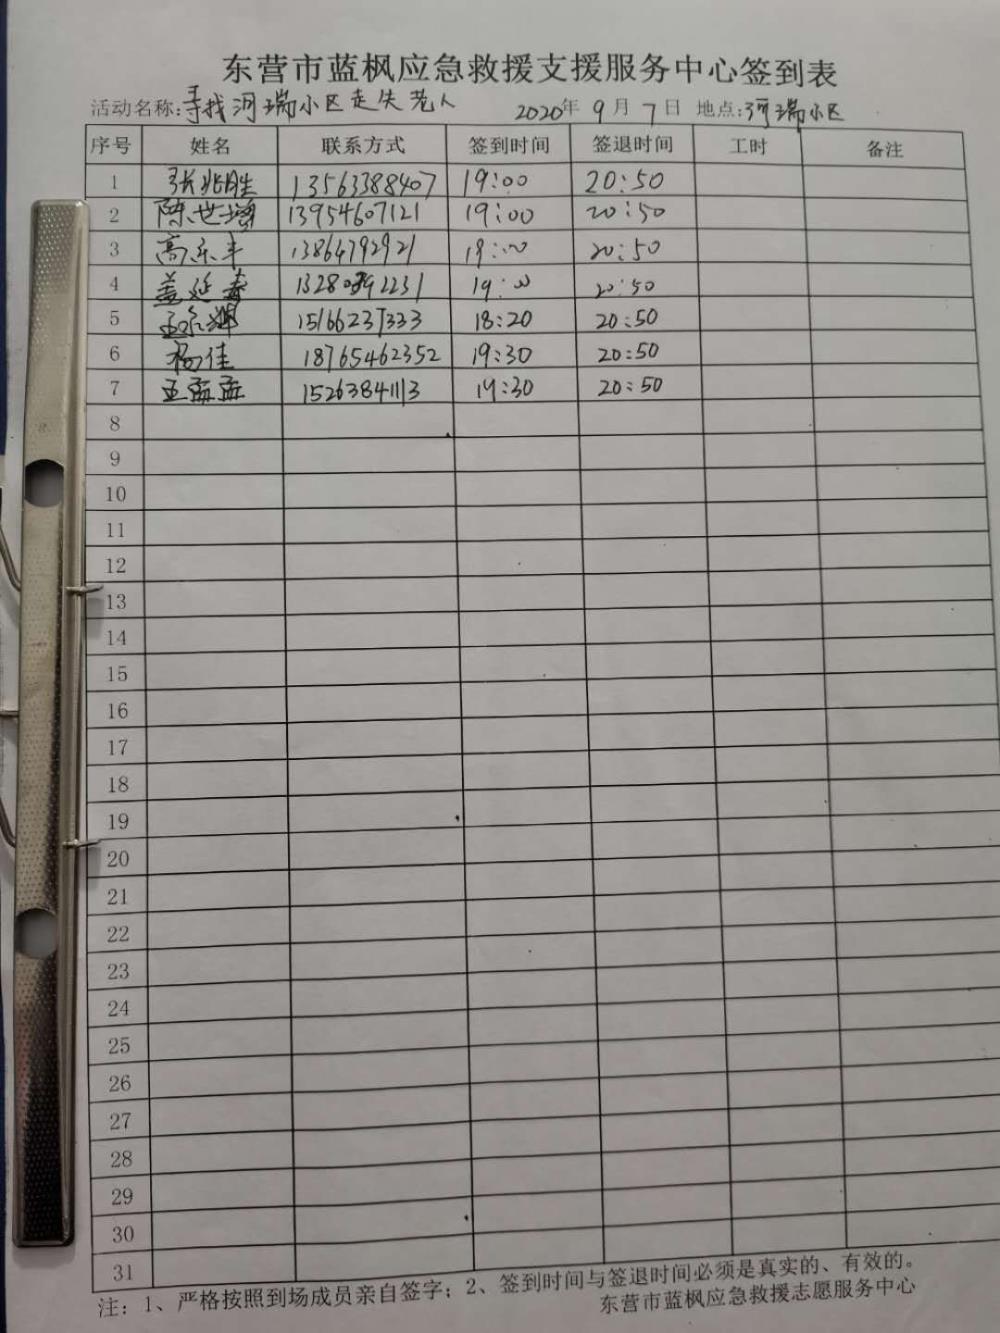 东营市蓝枫应急救援支援服务中心签到表
活动名称:寻找河瑞小区走失老人 2020年9月7日 地点:河瑞小区
序号 姓名 联系方式 签到时间 签退时间 工时 备注
1 张兆胜 13563388407 19:00 20:50
2 陈世 13954607121 19:00 20:50
3 高乐丰 13864792921 19:00 20:50
4 盖延春 19:00 20:50
5 15166237333 18:20 20:50
6 杨佳 18765462352 19:30 20:50
7 王孟孟 15263841113 19:30 20:50
8
9
10
11
12
13
14
15
16
17
18
19
20
21
22
23
24
25
26
27
28
29
30
31
注: 1、严格按照到场成员亲自签字; 2、签到时间与签退时间必须是真实的、有效的。
东营市蓝枫应急救援志愿服务中心